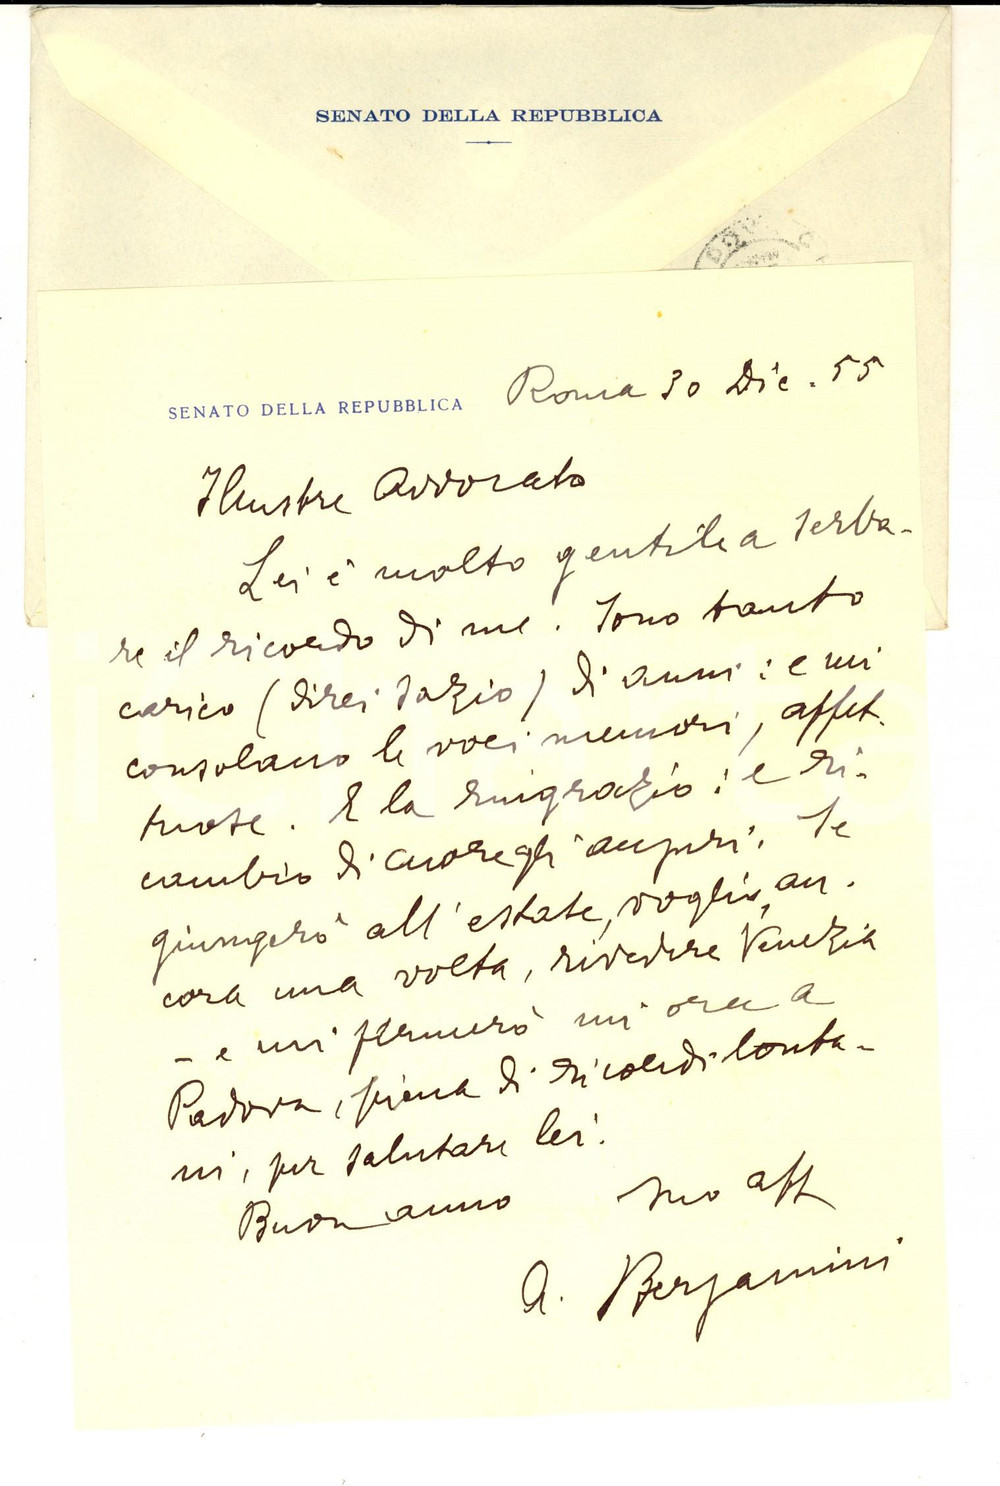 SENATO DELLA REPUBBLICA
SENATO DELLA REPUBBLICA
Roma 30 Dic. 55
Illustre Avvocato
Lei è molto gentile a serba-
re il ricordo di me. Sono tanto
carico (direi sazio) di anni: e mi
consolano le voci memori, affet-
tuose. E la ringrazio: e ri-
cambio di cuore gli auguri. Se
giungerò all'estate, voglio, an-
cora una volta, rivedere Venezia
- e mi fermerò mi ora a
Padova, piena di ricordi lonta-
ni, per salutare lei.
Buon anno suo aff
A. Bergamini